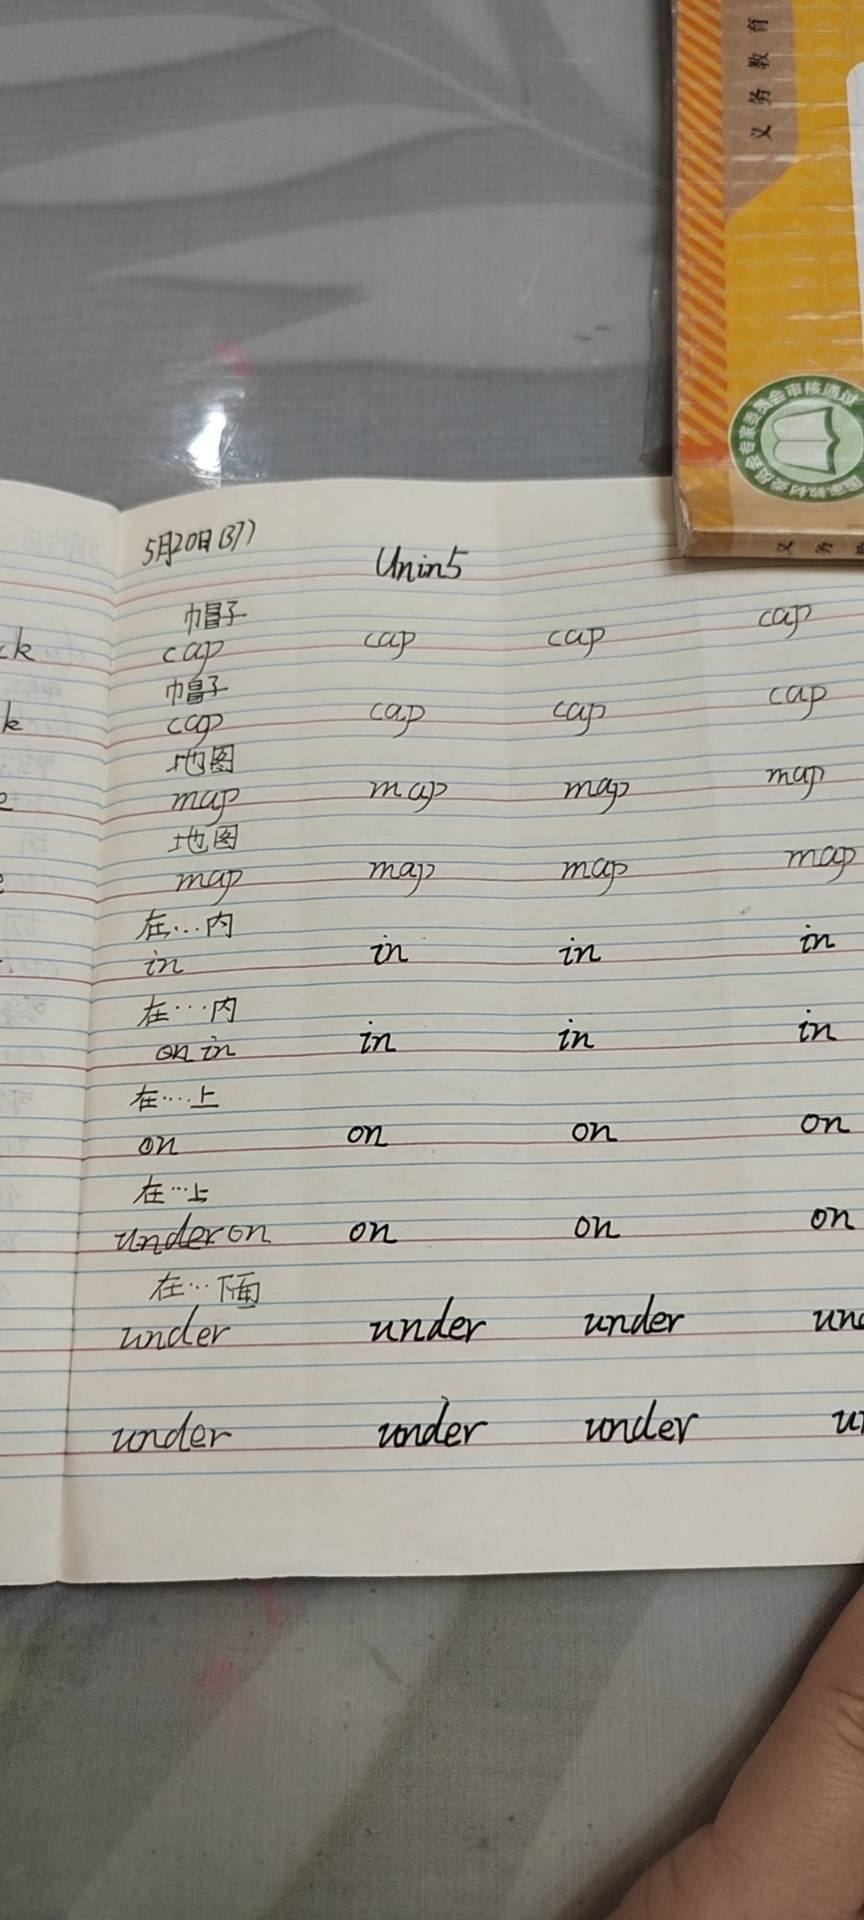 义务教育
国家教材委员会专家委员会审核通过
义 务
5月20日(37) Unin5
帽子
ck cap cap cap cap
帽子
k cap cap cap cap
地图
e map map map map
地图
e map map map map
在...内
in in in in
在...内
on in in in in
在....上
on on on on
在...上
under on on on on
在...下面
under under under und
under under under un